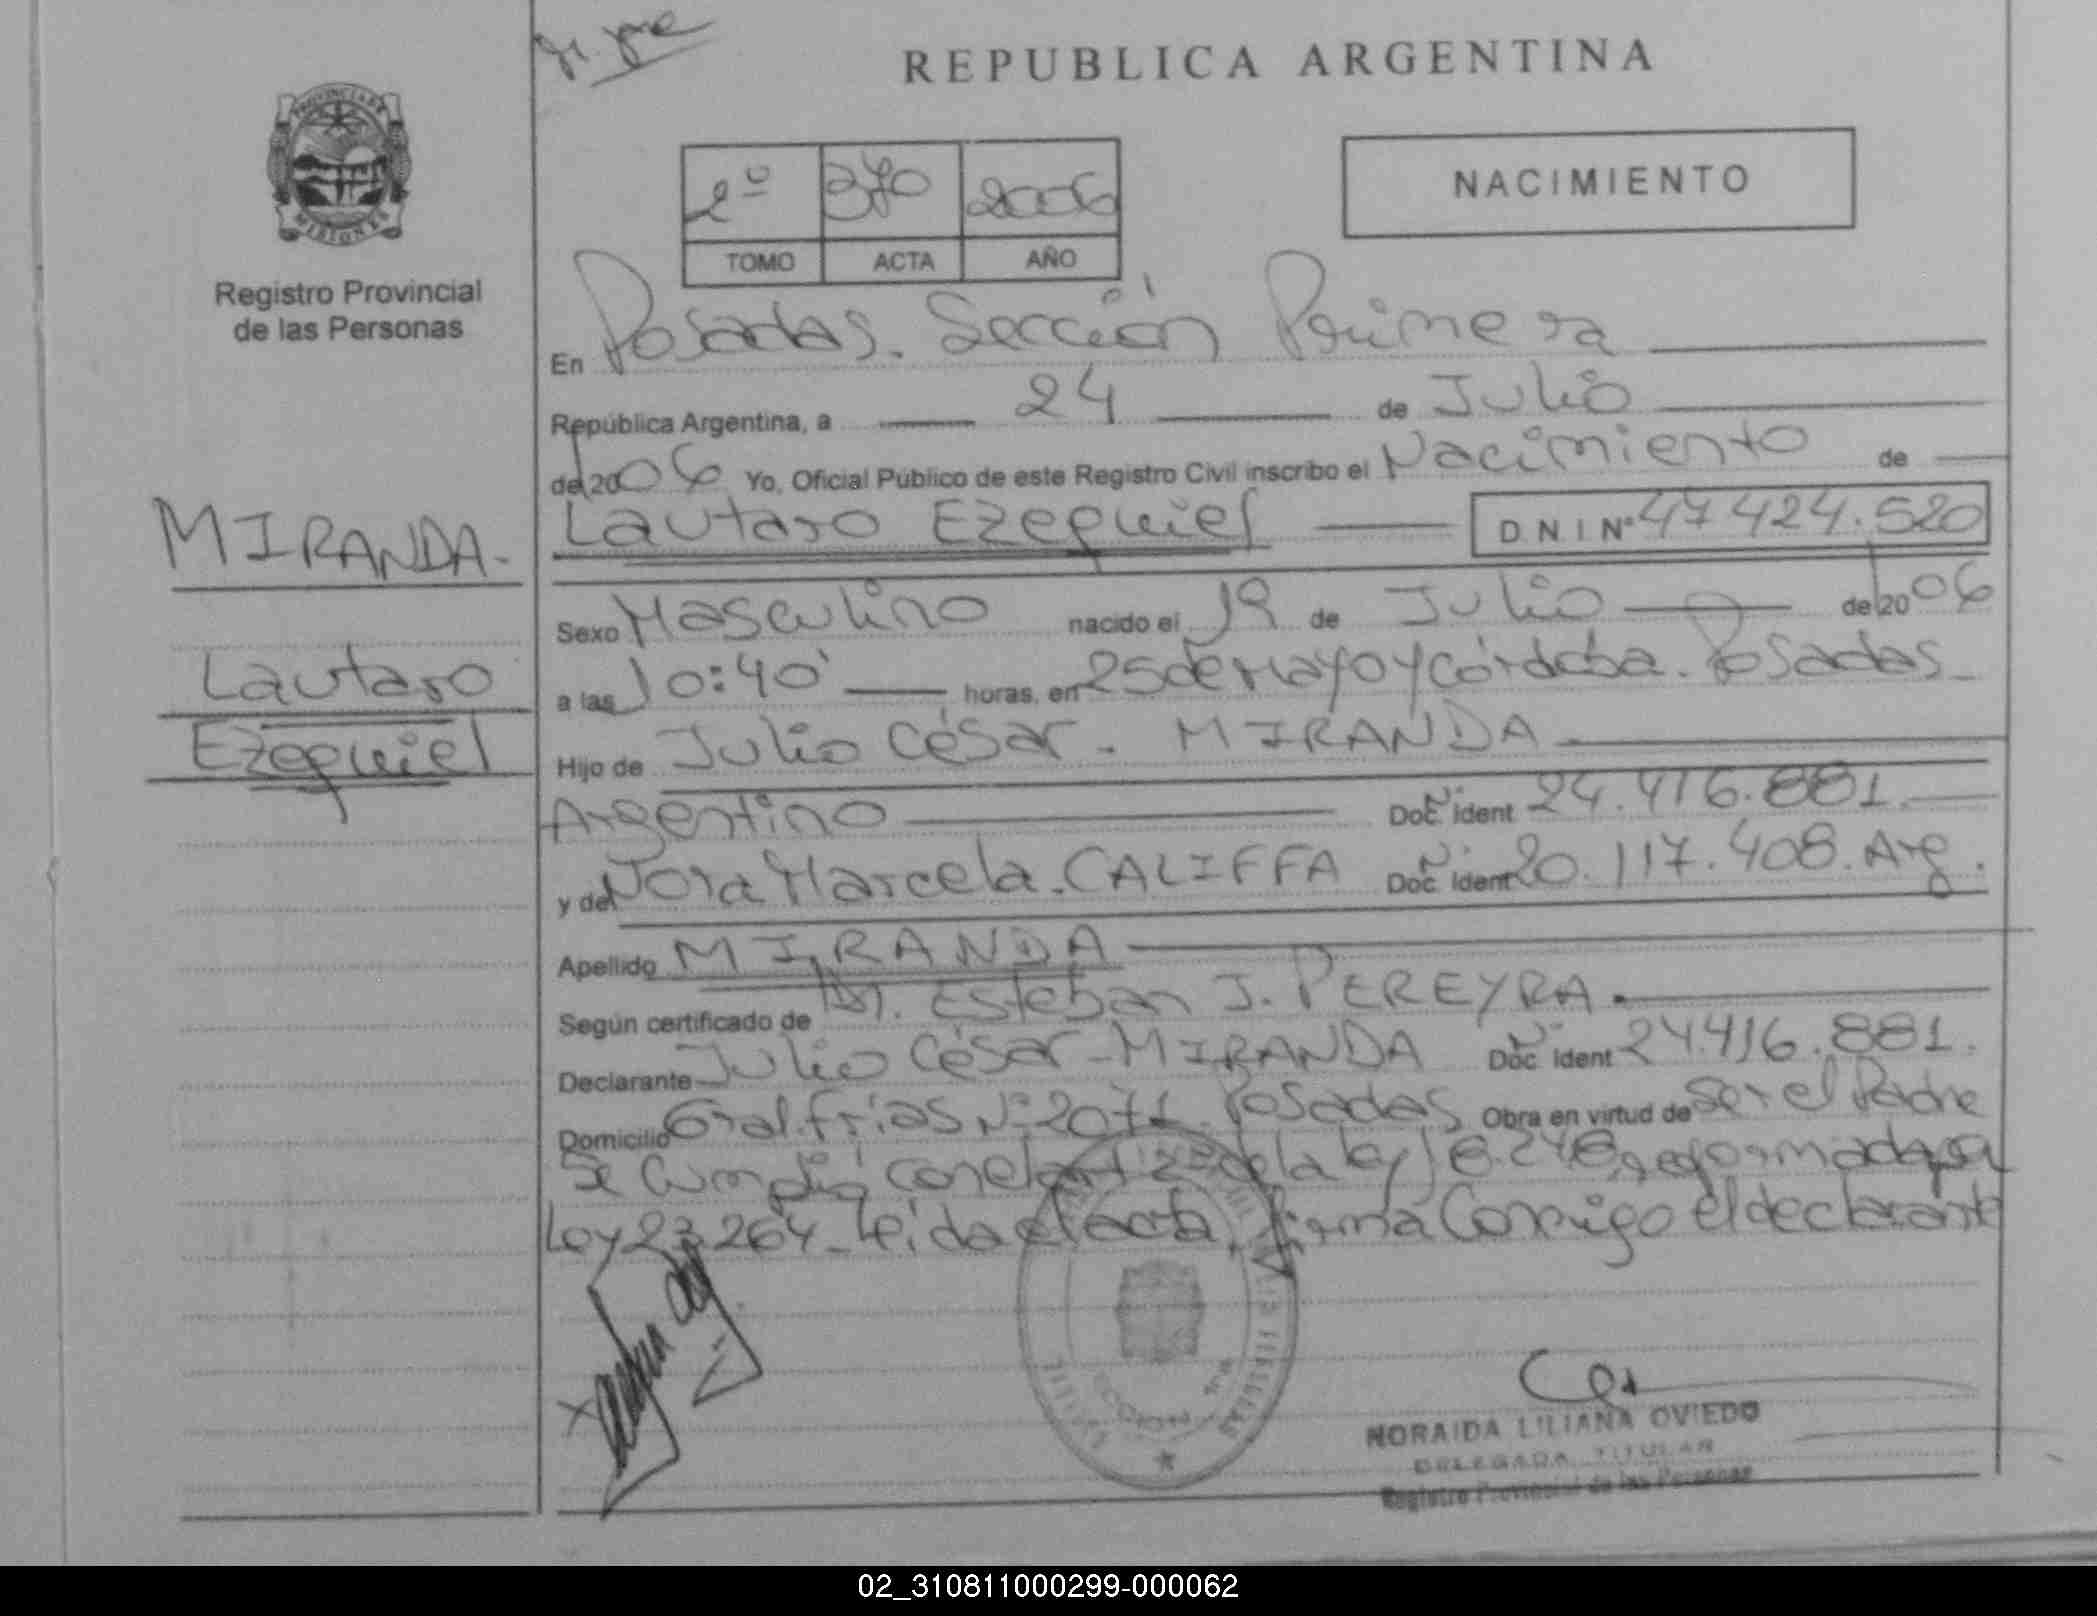 REPUBLICA ARGENTINA
PROVINCIA DE
MISIONES
Registro Provincial
de las Personas
2º 370 2006
TOMO ACTA AÑO
NACIMIENTO
En Posadas. Sección Primera
República Argentina, a 24 de Julio
de 2006 Yo, Oficial Público de este Registro Civil inscribo el Nacimiento de
Lautaro Ezequiel D.N.I Nº 47424.520
MIRANDA.
Lautaro
Ezequiel
Sexo Masculino nacido el 19 de Julio de 2006
a las 10:40' horas, en 25 de Mayo y Córdoba. Posadas
Hijo de Julio César. MIRANDA
Argentino Doc. ident 24.416.881.
y de Nora Marcela. CALIFFA Doc. ident 20.117.408. Arg.
Apellido MIRANDA
Según certificado de Dr. Esteban J. PEREYRA.
Declarante Julio César - MIRANDA Doc. ident 24.416.881.
Domicilio Gral. frías Nº 2071. Posadas Obra en virtud de Ser el Padre
Se Cumplió con el art 12 de la ley 18.248, reformada por
Ley 23.264_ Leída el acta, firma Conmigo el declarante
NORAIDA LILIANA OVIEDO
DELEGADA TITULAR
Registro Provincial de las Personas
02_310811000299-000062